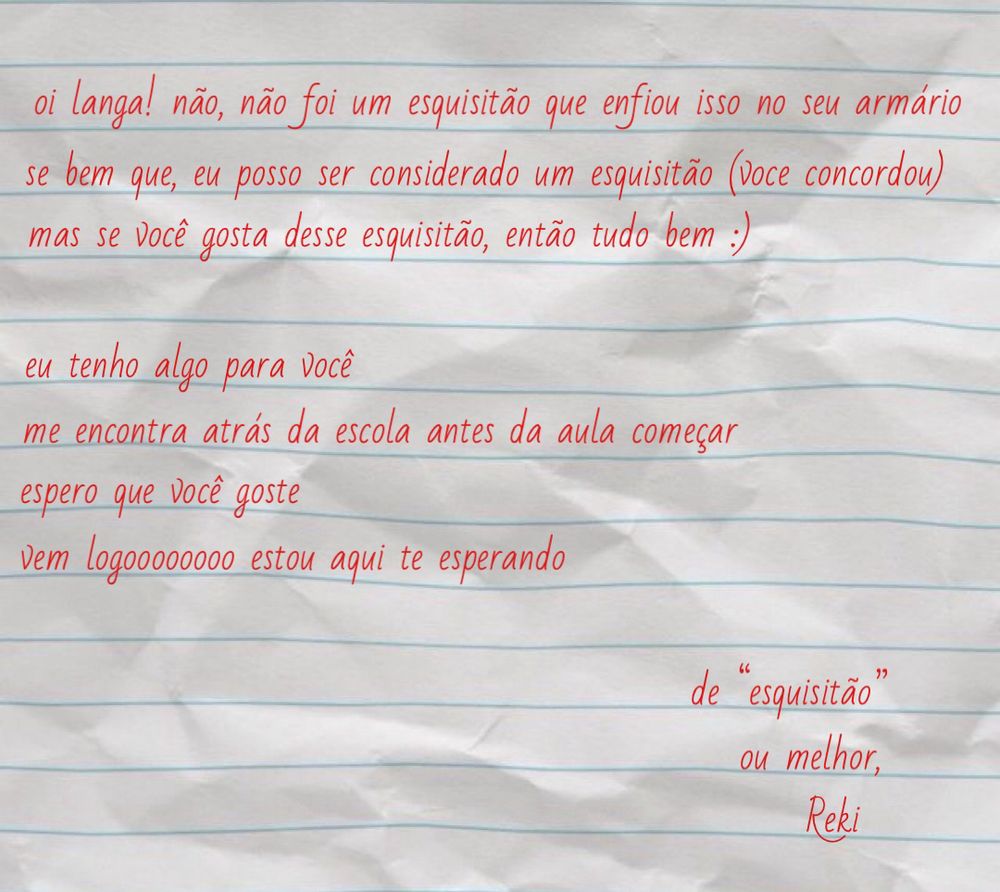 oi langa! não, não foi um esquisitão que enfiou isso no seu armário
se bem que, eu posso ser considerado um esquisitão (voce concordou)
mas se você gosta desse esquisitão, então tudo bem :)
eu tenho algo para você
me encontra atrás da escola antes da aula começar
espero que você goste
vem logoooooooo estou aqui te esperando
de “esquisitão”
ou melhor,
Reki